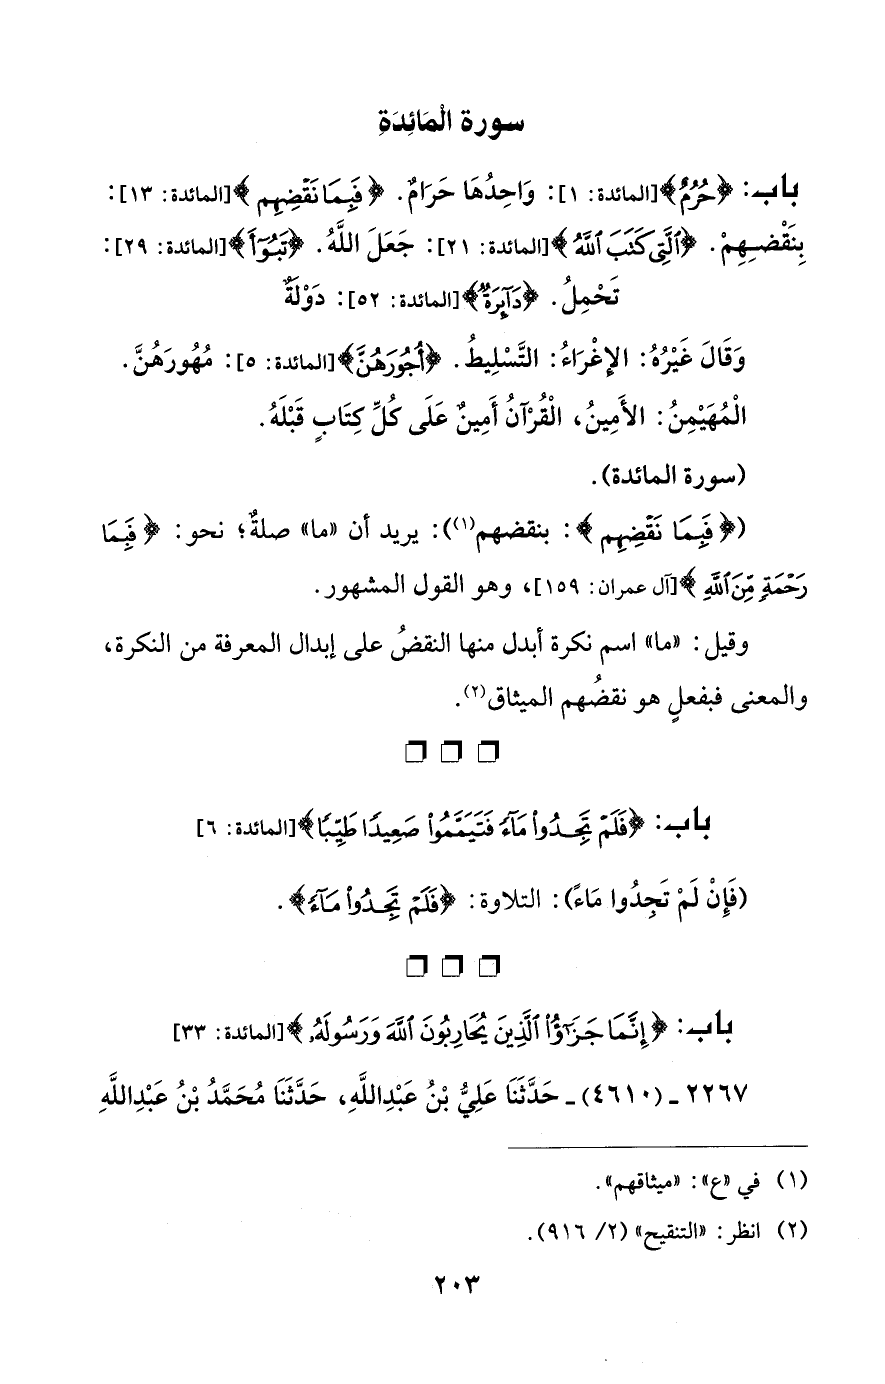 سورة الْمَائِدَةِ
باب: ﴿حُرُمٌ﴾[المائدة: ١]: وَاحِدُهَا حَرَامٌ. ﴿فَبِمَا نَقْضِهِم﴾[المائدة: ١٣]:
بِنَقْضِهِمْ. ﴿ٱلَّتِى كَتَبَ ٱللَّهُ﴾[المائدة: ٢١]: جَعَلَ اللَّهُ. ﴿تَبُوٓأَ﴾[المائدة: ٢٩]:
تَحْمِلُ. ﴿دَآئِرَةٌ﴾[المائدة: ٥٢]: دَوْلَةٌ
وَقَالَ غَيْرُهُ: الإِغْرَاءُ: التَّسْلِيطُ. ﴿أُجُورَهُنَّ﴾[المائدة: ٥]: مُهُورَهُنَّ.
الْمُهَيْمِنُ: الأَمِينُ، الْقُرْآنُ أَمِينٌ عَلَى كُلِّ كِتَابٍ قَبْلَهُ.
(سورة المائدة).
(﴿فَبِمَا نَقْضِهِم﴾: بنقضهم(١)): يريد أن «ما» صلةٌ؛ نحو: ﴿فَبِمَا
رَحْمَةٍ مِّنَ ٱللَّهِ﴾[آل عمران: ١٥٩]، وهو القول المشهور.
وقيل: «ما» اسم نكرة أبدل منها النقضُ على إبدال المعرفة من النكرة،
والمعنى فبفعلٍ هو نقضُهم الميثاق(٢).
باب: ﴿فَلَمْ تَجِدُوا۟ مَآءً فَتَيَمَّمُوا۟ صَعِيدًا طَيِّبًا﴾[المائدة: ٦]
(فَإِنْ لَمْ تَجِدُوا مَاءً): التلاوة: ﴿فَلَمْ تَجِدُوا۟ مَآءً﴾.
باب: ﴿إِنَّمَا جَزَٰٓؤُا۟ ٱلَّذِينَ يُحَارِبُونَ ٱللَّهَ وَرَسُولَهُۥ﴾[المائدة: ٣٣]
٢٢٦٧ ـ (٤٦١٠) ـ حَدَّثَنَا عَلِيُّ بْنُ عَبْدِاللَّهِ، حَدَّثَنَا مُحَمَّدُ بْنُ عَبْدِاللَّهِ
(١) في «ع»: «ميثاقهم».
(٢) انظر: «التنقيح» (٢/ ٩١٦).
٢٠٣